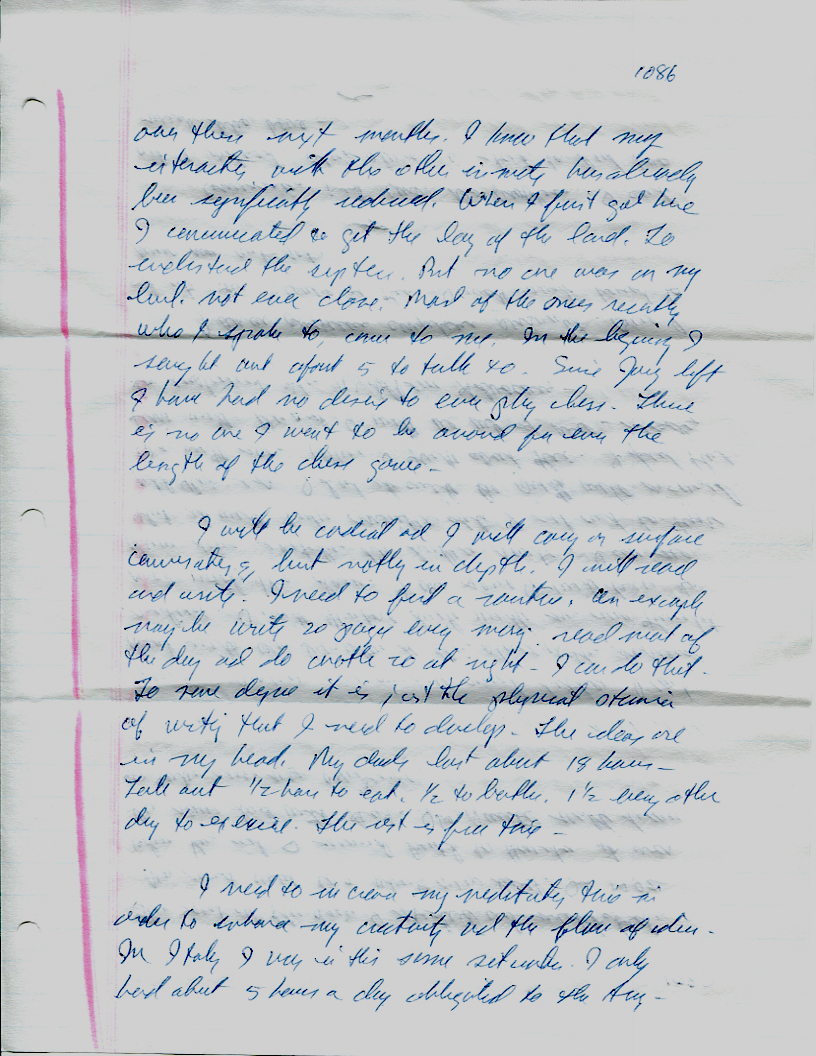 1086
over these next months. I know that my
interacting with the other inmates has already
been significantly reduced. When I first got here
I communicated to get the lay of the land. To
understand the system. But no one was on my
level. not even close. Most of the ones recently
who I spoke to, came to me. In the beginning I
sought out about 5 to talk to. Since Jerry left
I have had no desire to even play chess. There
is no one I want to be around for even the
length of the chess game -
I will be cordial and I will carry on surface
conversations, but nothing in depth. I will read
and write. I need to find a routine. An example
may be write 20 pages every morning. read most of
the day and do another 20 at night - I can do that.
To some degree it is just the physical stamina
of writing that I need to develop - The ideas are
in my head. My days last about 18 hours -
Take out 1/2 hour to eat. 1/2 to bathe. 1 1/2 every other
day to exercise. The rest is free time -
I need to increase my meditating time in
order to enhance my creativity and the flow of ideas -
In Italy I was in this same situation. I only
had about 5 hours a day obligated to the Army -